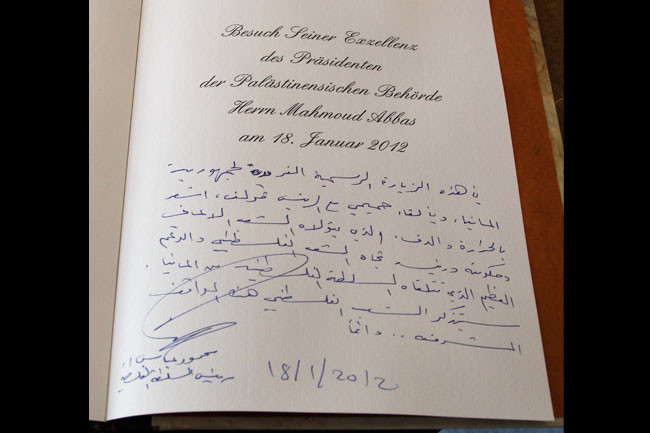 Besuch Seiner Exzellenz
des Präsidenten
der Palästinensischen Behörde
Herrn Mahmoud Abbas
am 18. Januar 2012
في هذه الزيارة الرسمية لجمهورية
المانيا، وفي لقاء حميمي مع الرئيس فولف، اشعر
بالحرارة والدفء الذي يتولاه الشعب
وحكومته ورئيسه تجاه الشعب الفلسطيني والدعم
العظيم الذي تتلقاه السلطة الفلسطينية من المانيا.
ستتذكر الشعب الفلسطيني هذه المواقف
المشرفة .. دائماً
محمود عباس
رئيس السلطة الفلسطينية
18/1/2012